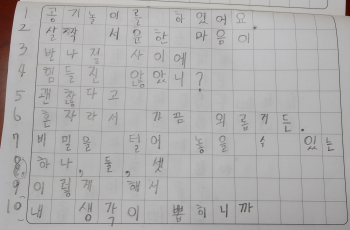 1 공기놀이를 하였어요.
2 살짝 서운한 마음이
3 반나절 사이에
4 힘들진 않았니?
5 괜찮다고
6 혼자라서 가끔 외롭거든.
7 비밀을 털어 놓을 수 있는
8 하나, 둘, 셋
9 이렇게 해서
10 내 생각이 뽑히니까